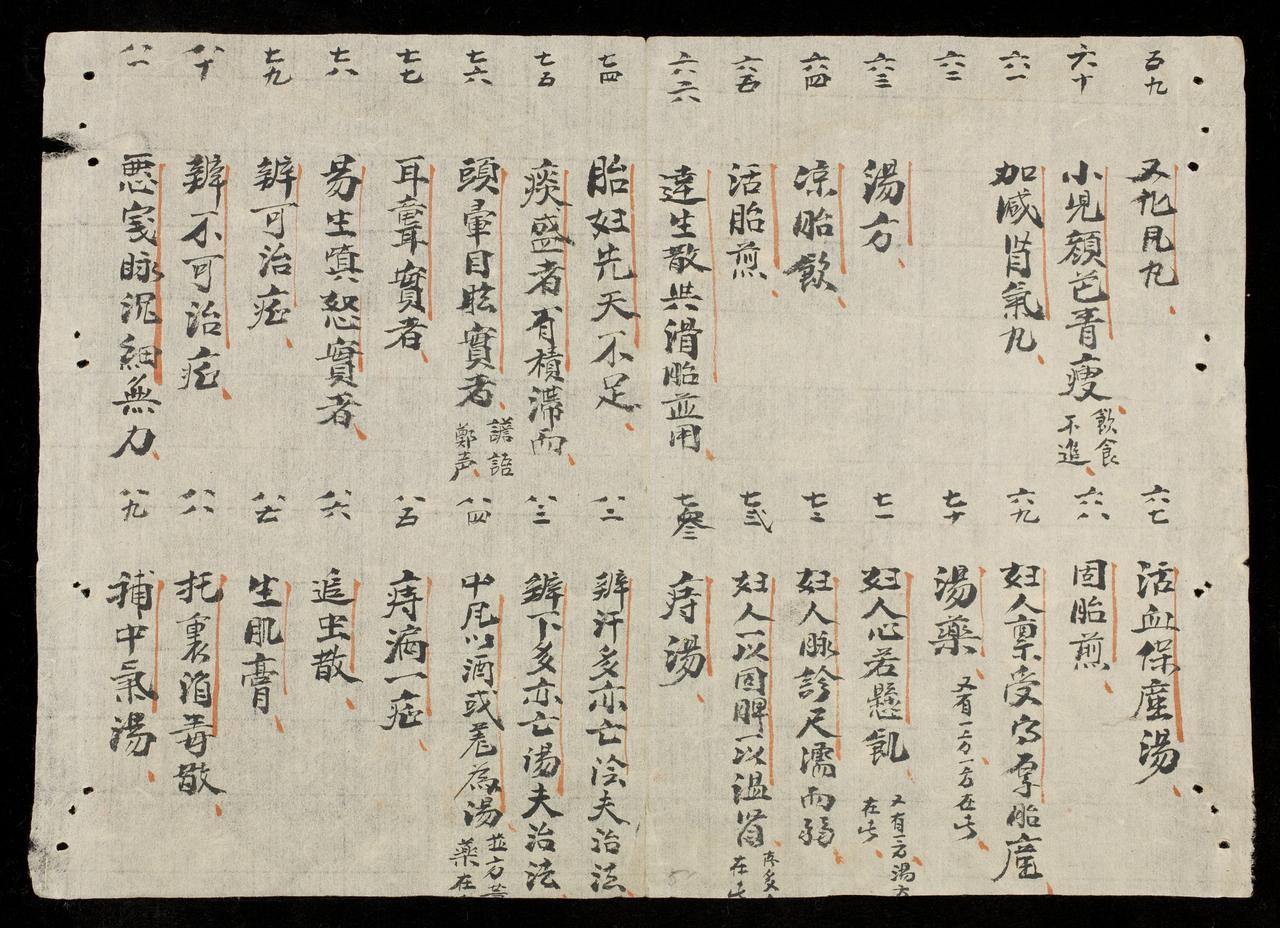 五九
又化凡九
六十
小児顔色青瘦
飲食
不進
六一
加减肾氣九
六二
六三
湯方
六四
凉胎飲
六五
活胎煎
六六
達生散共滑胎並用
六七
活血保産湯
六八
固胎煎
六九
妇人禀受胎産
七十
湯藥
又有一方一方在
七一
妇人心若懸飢
又有一方湯方
在
七二
妇人脉診尺濡而弱
七弍
妇人一以固脾一以温肾
在
七叁
痔湯
七四
胎妇先天不足
七五
痰盛者有積滞而
七六
頭暈目眩實者
譫語
鄭声
七七
耳聾實者
七八
易生嗔怒實者
七九
辨可治症
八十
辨不可治症
八一
悪寒脉沉細無力
八二
辨汗多亦亡法夫治法
八三
辨下多亦亡湯夫治法
八四
中凡以酒或羗為湯
並方
藥在
八五
痔病一症
八六
追虫散
八七
生肌膏
八八
托裏消毒散
八九
補中氣湯